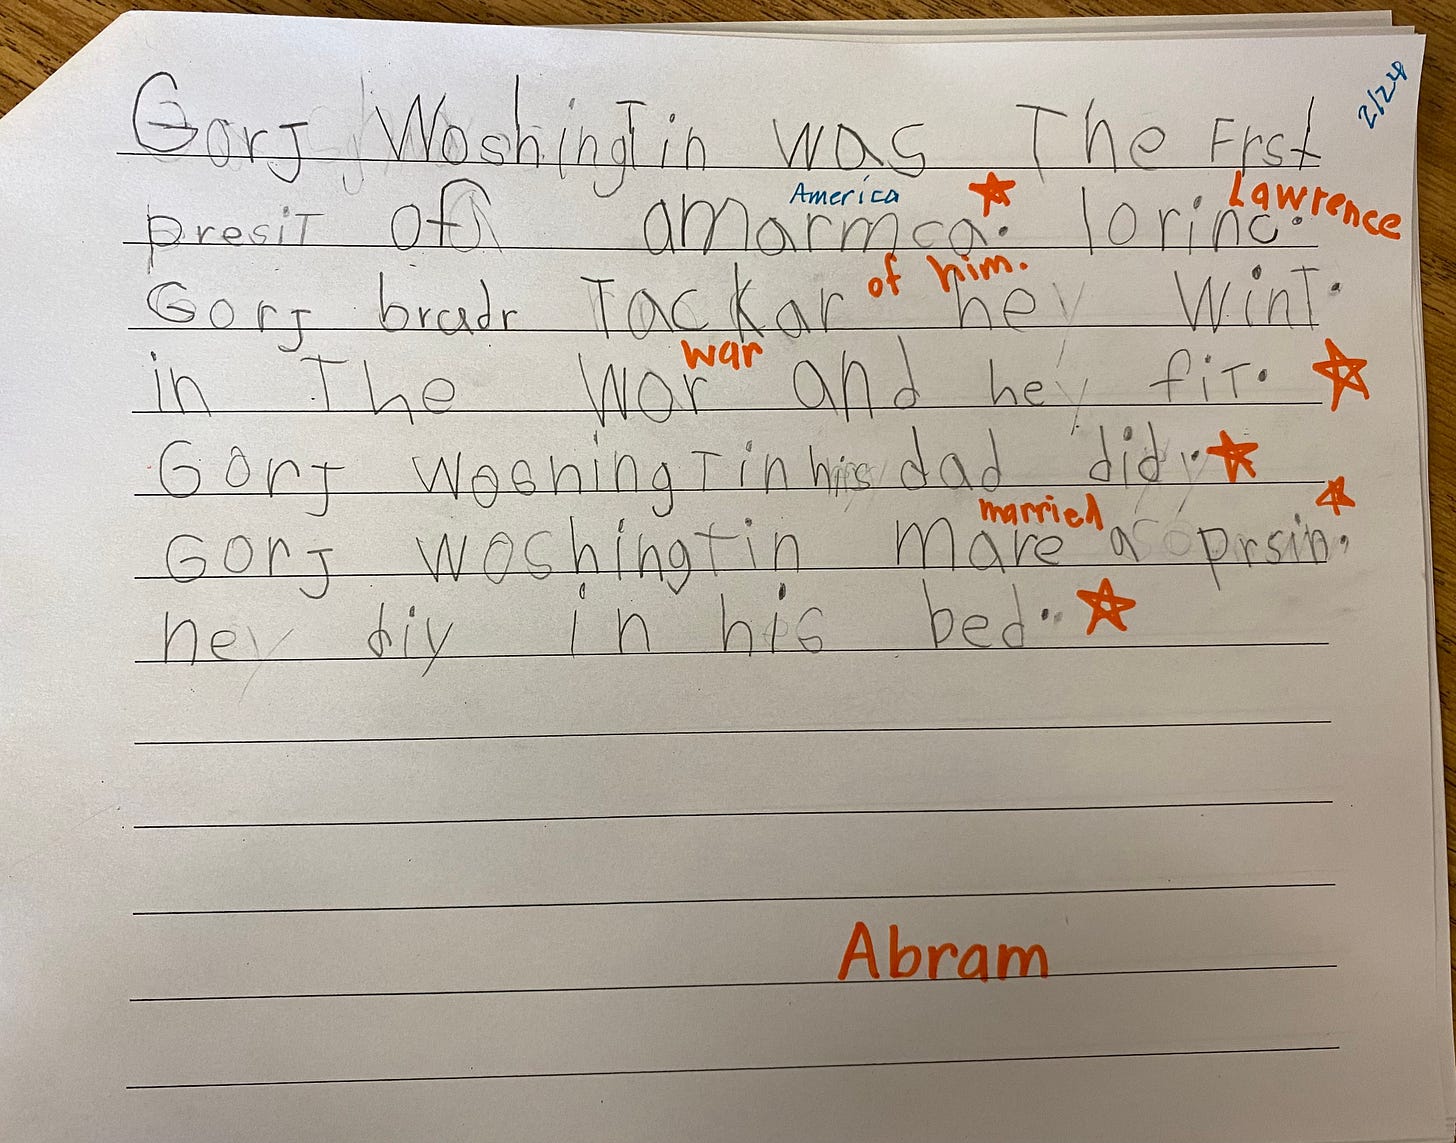 2/24
Gorj Woshingtin was The Frst
America Lawrence
presit of amarmca. lorinc.
of him.
Gorj bradr Tackar hey Wint.
war
in The Wor and hey fit.
Gorj Woshingtin his dad did.
married
Gorj Woshingtin mare a prsin.
hey diy in his bed.
Abram